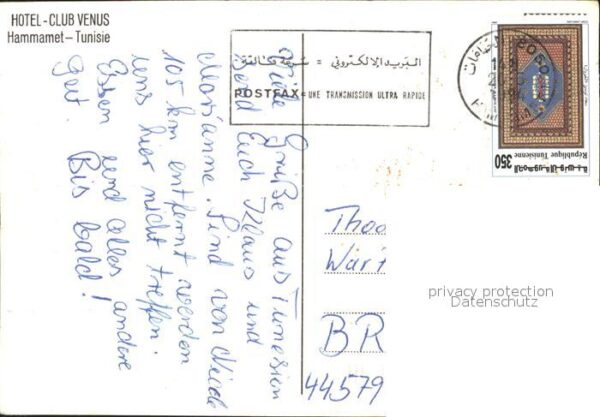 HOTEL - CLUB VENUS
Hammamet - Tunisie
البريد الالكتروني = سرعة فائقة
POSTFAX = UNE TRANSMISSION ULTRA RAPIDE
Viele Grüße aus Tunesien
Euch Klaus und
Marianne. Sind von
105 km entfernt werden
uns hier nicht treffen.
Essen und alles andere
gut. Bis bald!
350
République Tunisienne
الجمهورية التونسية
BR
44579
privacy protection
Datenschutz